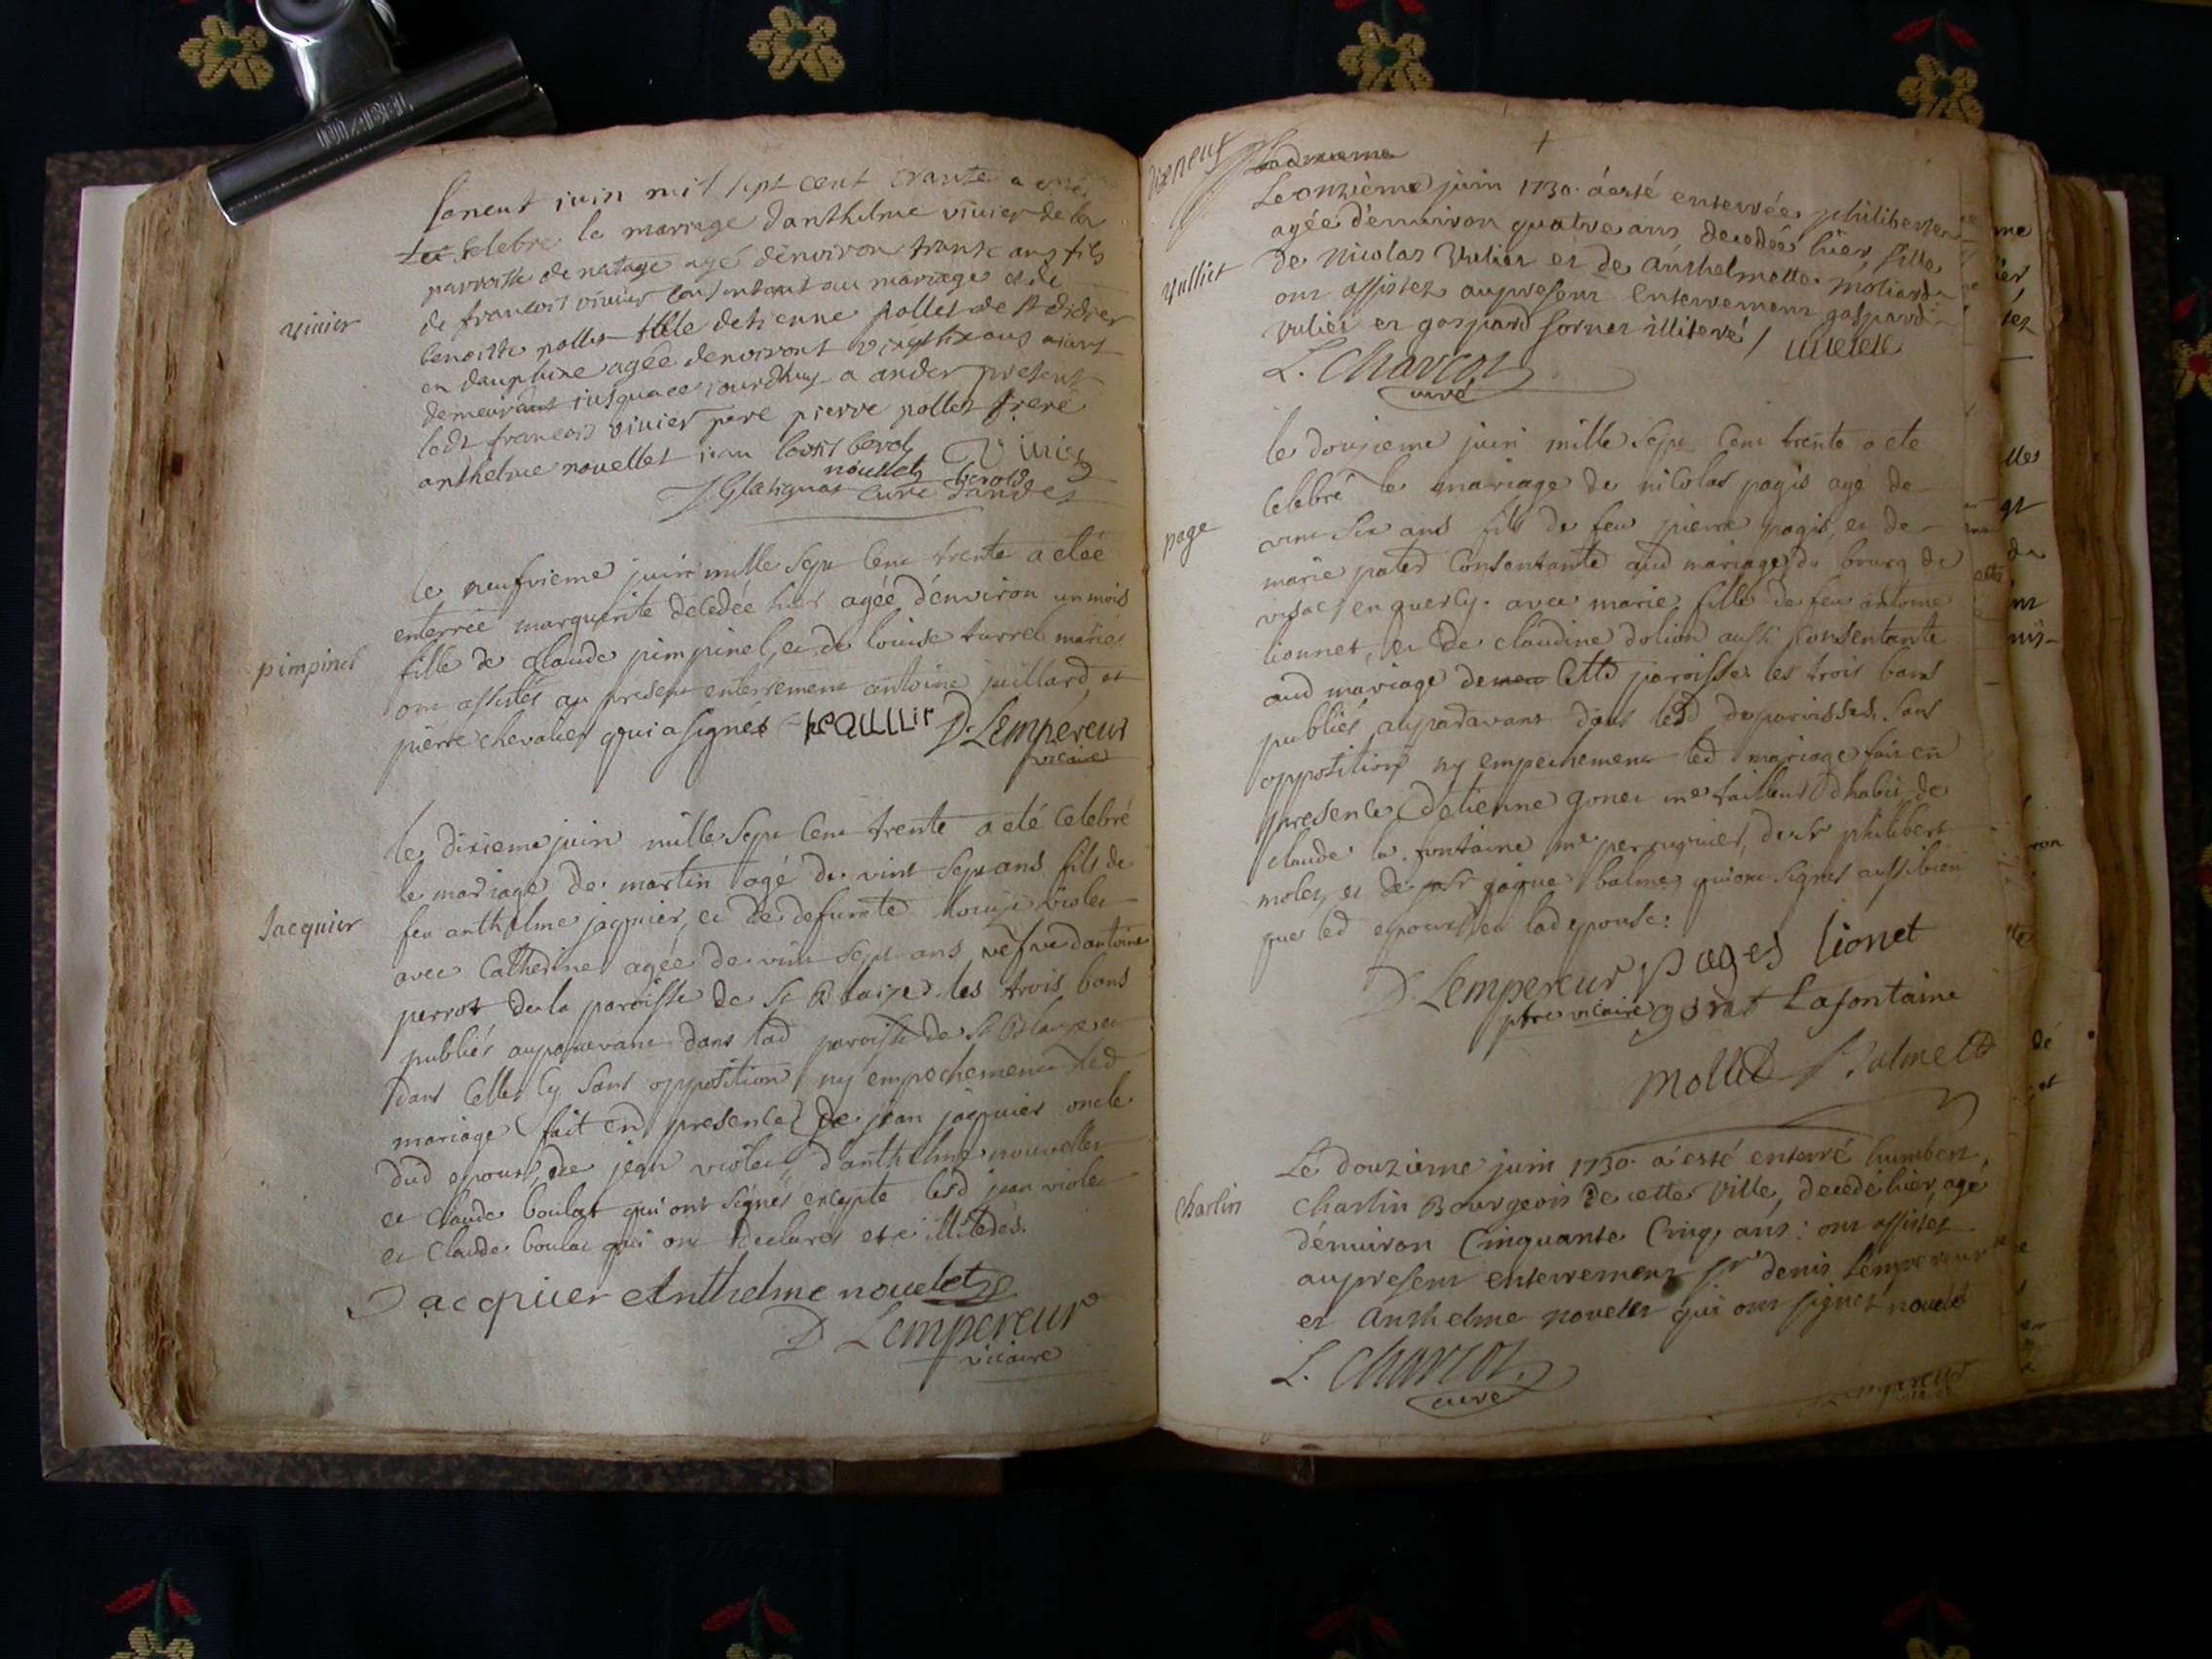 le neuf juin mil sept cent trante a esté
celebré le mariage danthelme vivier de la
parroisse de natage agé denviron trante ans fils
de francois vivier consentant au mariage et de
benoitte pollet fille detienne pollet de st didier
en dauphine agée denviront vingt six ans aiant
demeurant jusqua ce jourdhuy a ander present
ledt francois vivier pere pierre pollet frere
anthelme nouellet jean louis berod
vivier
nouellet berod
curé dandert
vivier
le neufvieme juin mille sept cent trente a etée
enterrée marguerite decedée hier agée d'environ un mois
pimpinel
fille de claude pimpinel, et de louise turrel mariés
ont assistés au present enterrement antoine juillard et
pierre chevalier qui a signés
D. Lempereur
vicaire
le dixieme juin mille sept cent trente a eté celebré
le mariage de martin agé de vint sept ans fils de
Jacquier
feu anthelme jaquier, et de defunte violet
avec Catherine agée de vint sept ans vefve dantoine
perrot de la paroisse de St Blaise les trois bans
publiés auparavant dans lad paroisse de St Blaise et
dans celle cy sans opposition ny empechement led
mariage fait en presence de jean jaquier oncle
dud epoux, de jean violet d'anthelme nouvellet
et claude boulat qui ont signés excepte lesd jean violet
et claude boulat qui ont declarés etre illiterés.
Jacquier Anthelme nouelet
D Lempereur
vicaire
Le onzième juin 1730. a esté enterrée philiberte
agée d'environ quatre ans decedée hier, fille
vulliet
de Nicolas Vuliet et de Anthelmette moliard
ont assistez au present enterrement gaspard
vuliet et gaspard sornet illiteré /
L. Charcot
curé
le douzieme juin mille sept cent trente a ete
celebré le mariage de nicolas pagis agé de
page
vint six ans fils de feu pierre pagis, et de
marie consentante aud mariage du bourg de
en quercy. avec marie fille de feu antoine
lionnet, et de claudine dolion aussi consentante
aud mariage de cette paroisse les trois bans
publiés auparavant dans lesd deparoisses sans
opposition ny empechement led mariage fait en
presence detienne gonet me tailleur dhabit de
claude la fontaine me perruquier, de sr philibert
molet, et de sr jaque balme qui ont signés aussi bien
que led epoux et lad epouse:
D. Lempereur pages lionet
ptre vicaire gonet Lafontaine
mollet Balme
Le douzieme juin 1730. a esté enterré humbert
Charlin
Charlin Bourgeois de cette Ville, decedé hier, agé
d'environ Cinquante Cinq ans: ont assistez
au present enterrement Sr denis Lempereur
et Anthelme novellet qui ont signez nouelé
L. Charcot
curé
Lempereur